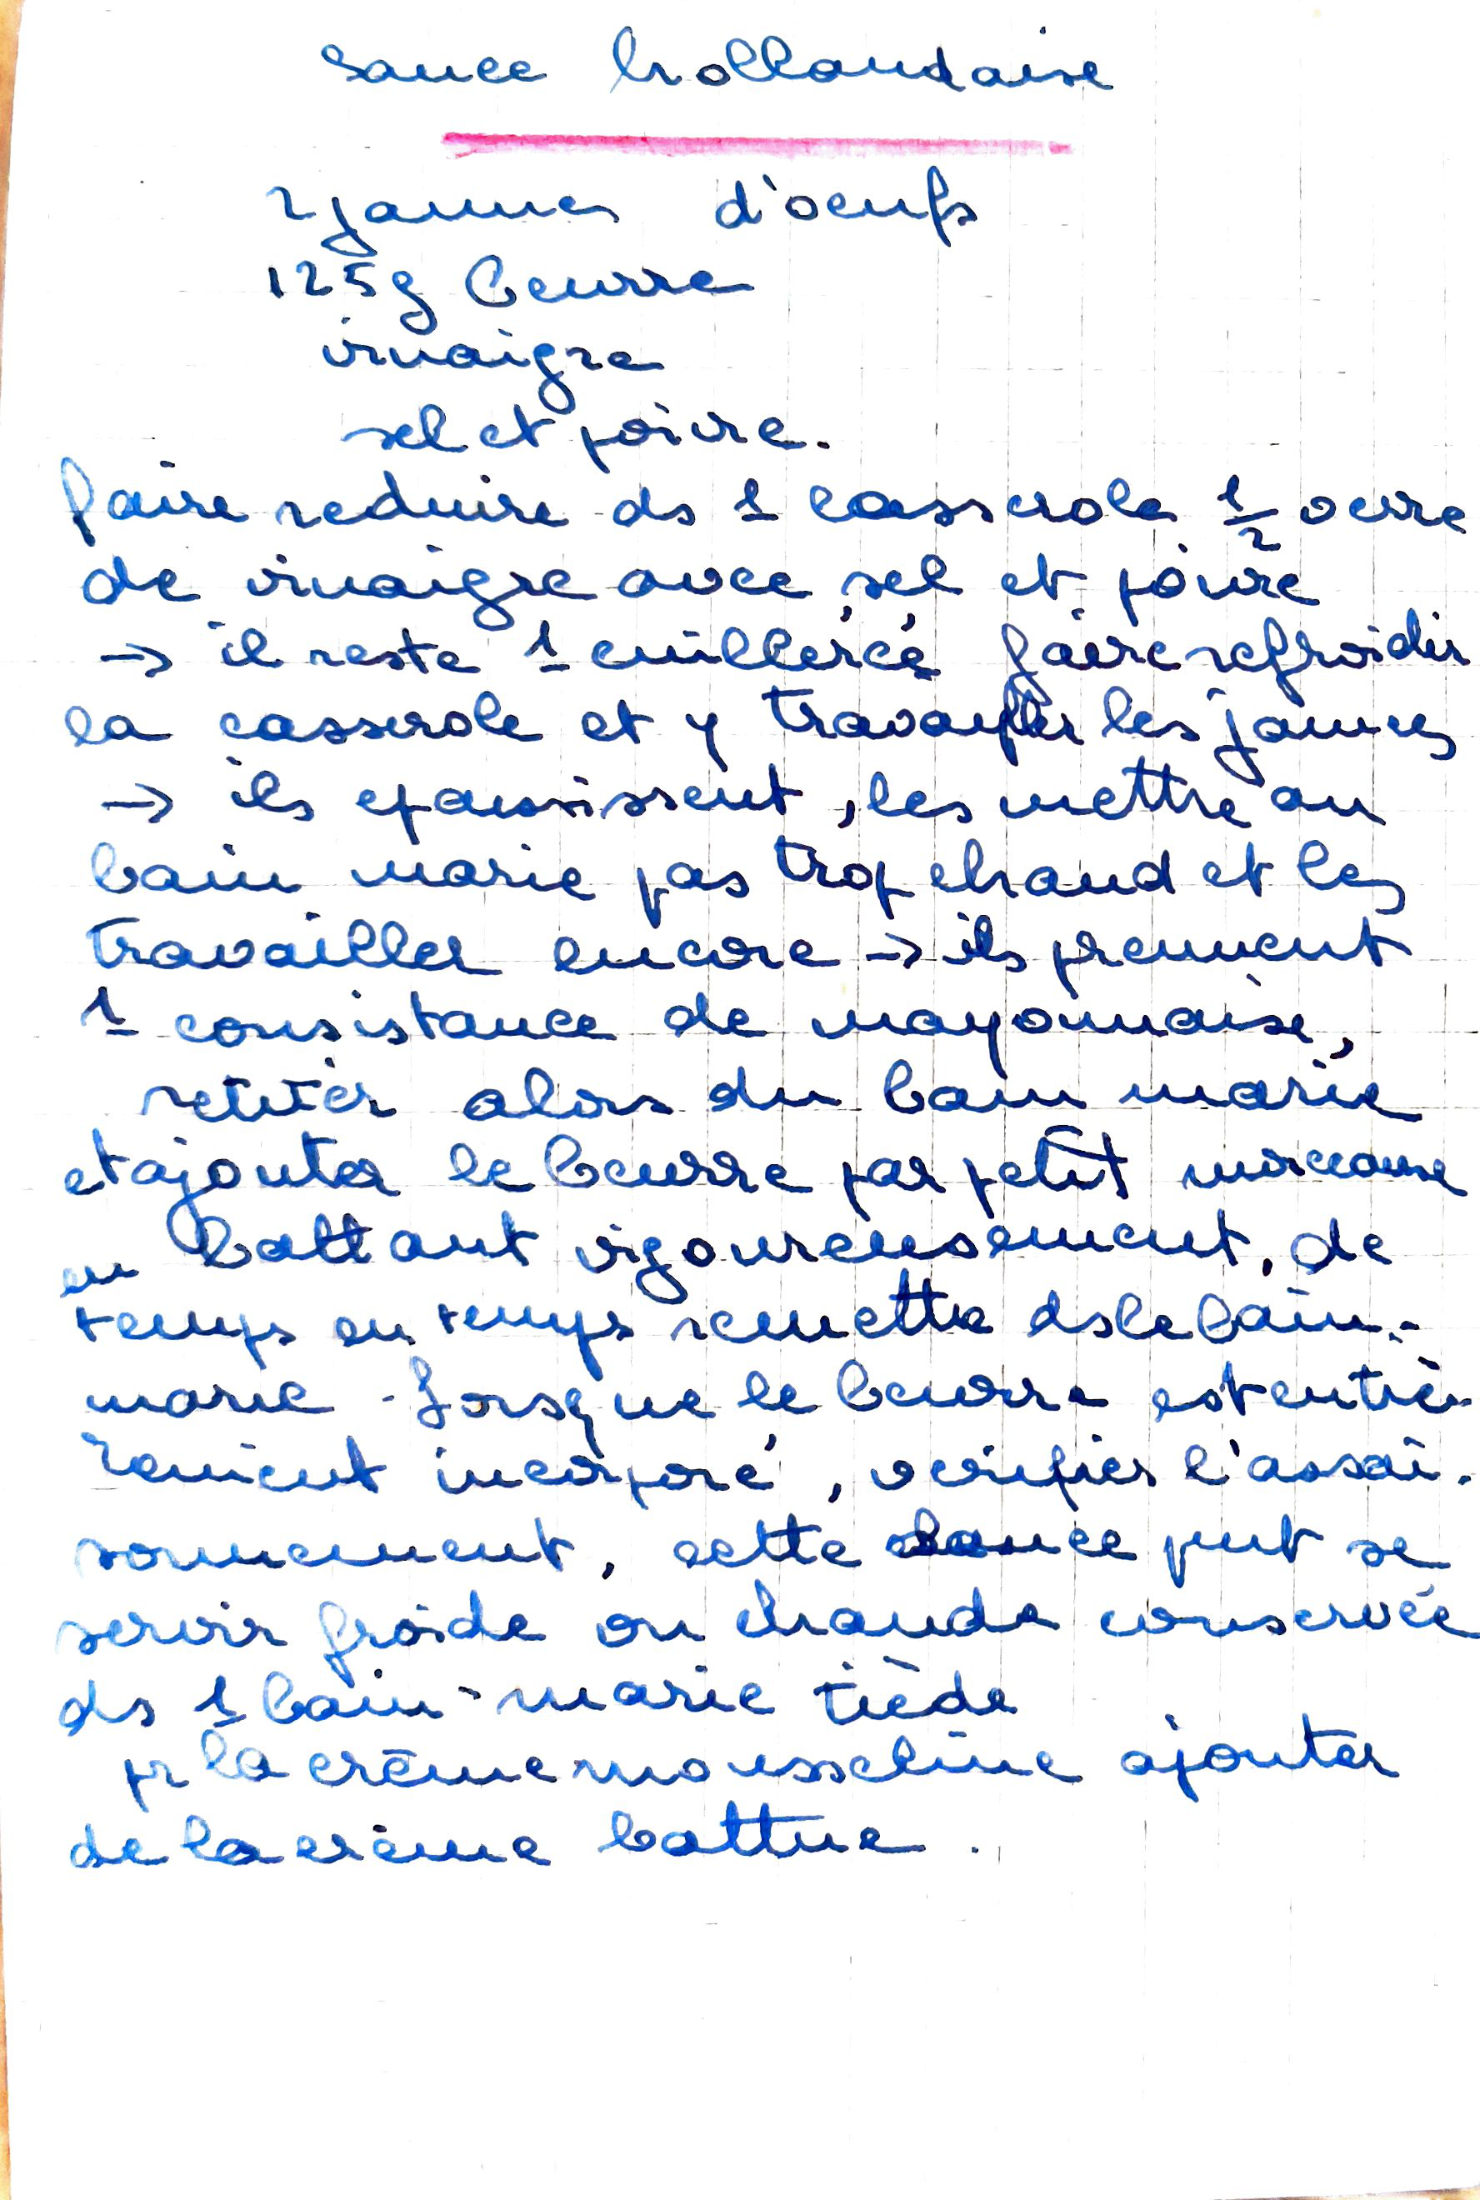 sauce hollandaise
2 jaunes d'oeufs
125g beurre
vinaigre
sel et poivre.
faire reduire ds 1 casserole 1/2 verre
de vinaigre avec sel et poivre
→ il reste 1 cuillerée faire refroidir
la casserole et y travailler les jaunes
→ ils epaississent, les mettre au
bain marie pas trop chaud et les
travailler encore → ils prennent
1 consistance de mayonnaise,
retirer alors du bain marie
et ajouter le beurre par petit morceaux
en battant vigoureusement, de
temps en temps remettre ds le bain-
marie. Lorsque le beurre est entiè-
rement incorporé, verifier l'assai-
sonnement, cette sauce put se
servir froide ou chaude conservée
ds 1 bain-marie tiède
pr la crème mousseline ajouter
de la crème battue.